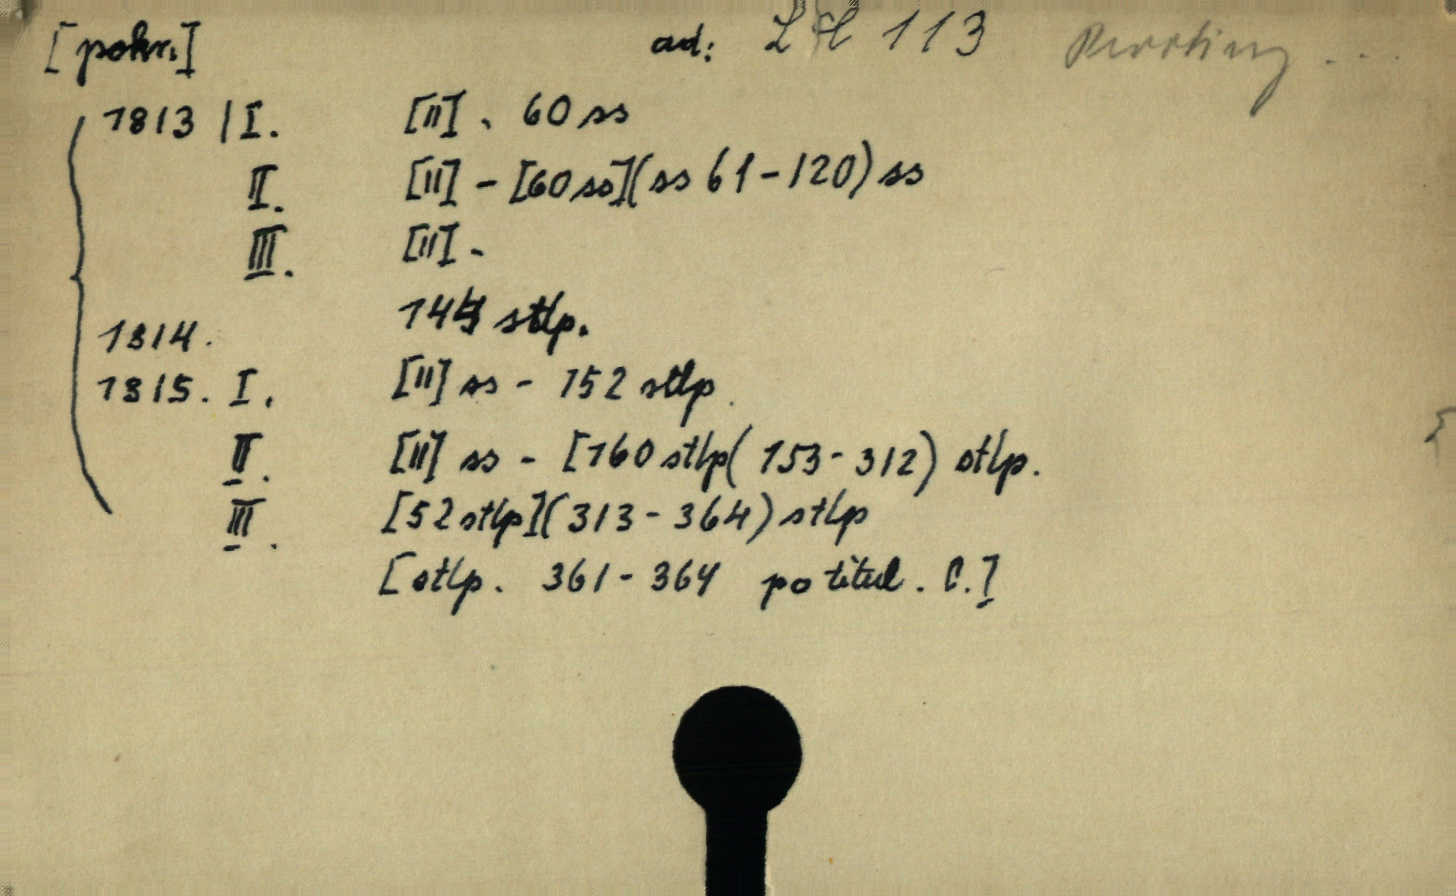 [pokr.] ad: LH 113
1813 | I. [II]. 60 ss
II. [II] - [60 ss](ss 61-120) ss
III. [II] -
144 stlp.
1814.
1815. I. [II] ss - 152 stlp.
II. [II] ss - [160 stlp(153-312) stlp.
III. [52 stlp](313-364) stlp
[stlp. 361-364 po titul. C.]